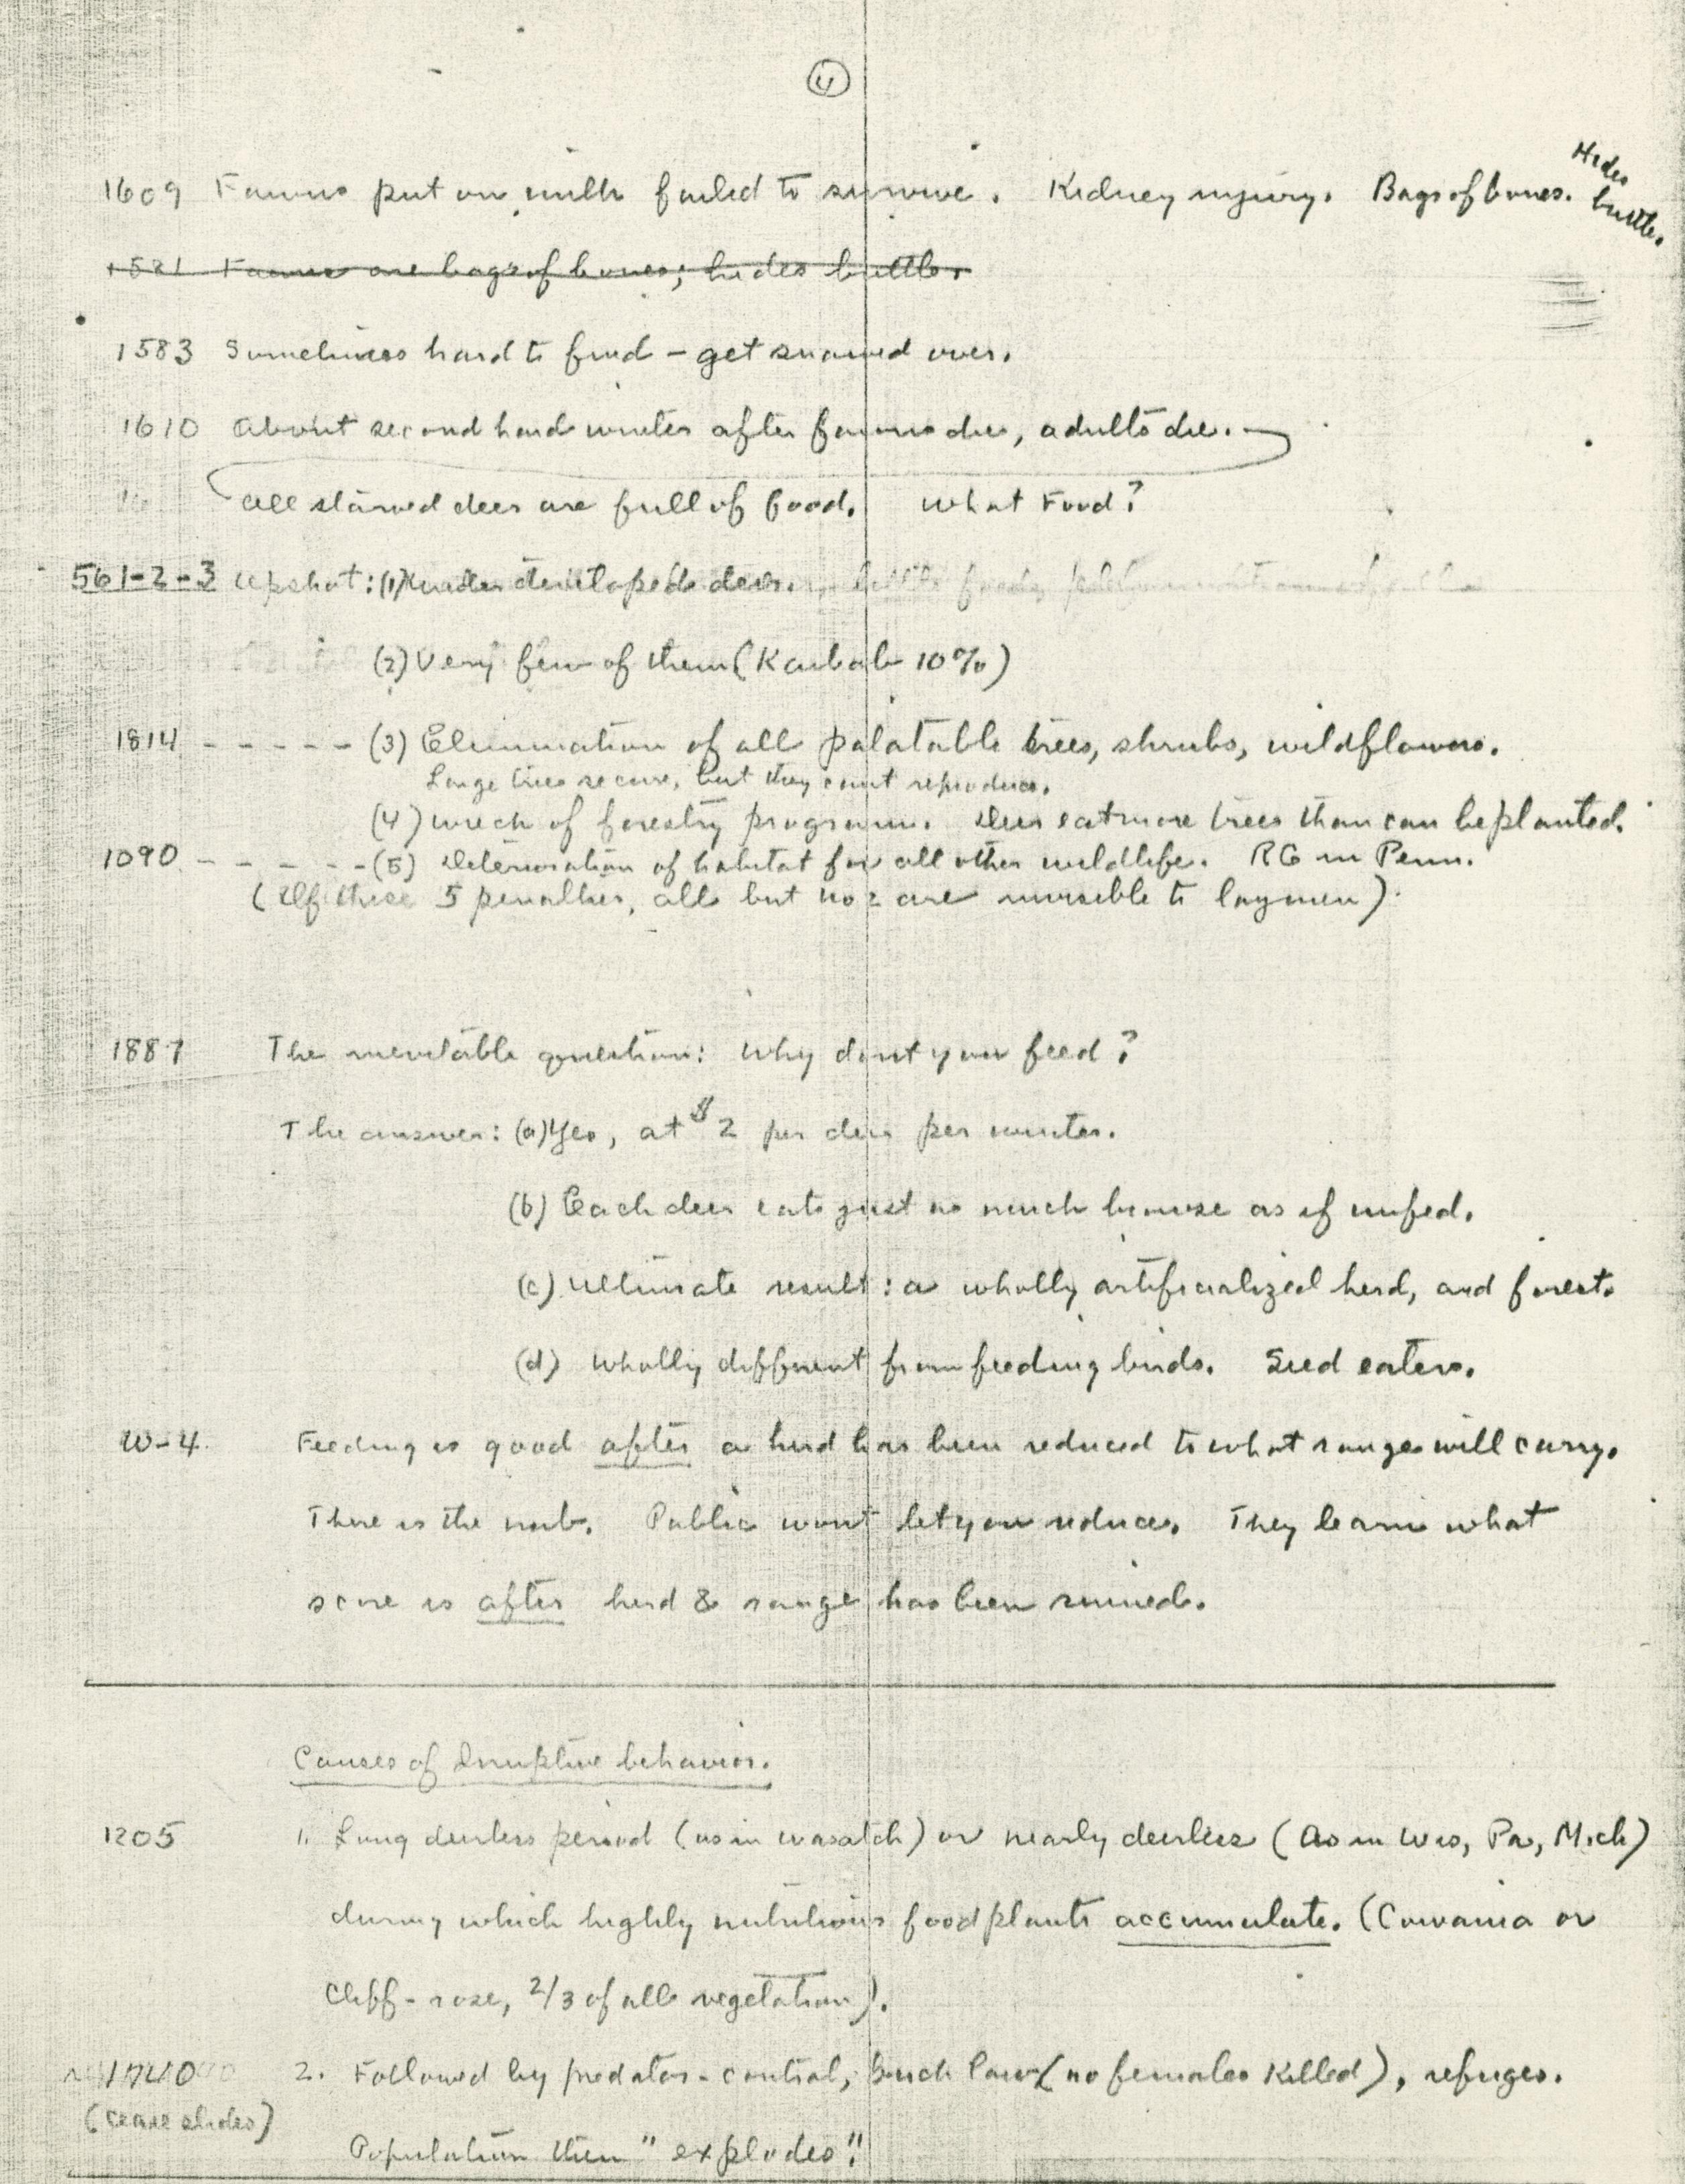 4
1609 Fawns put on milk failed to survive. Kidney injury. Bags of bones. Hides brittle.
1581 Fawns are bags of bones; hides brittle.
1583 Sometimes hard to find - get snowed over.
1610 About second hard winter after fawns die, adults die.
All starved deer are full of food. What Food?
561-2-3 Upshot: (1) Under developed deer.
(2) Very few of them (Kaibab 10%)
1814 - - - - - (3) Elimination of all palatable trees, shrubs, wildflowers.
Large trees secure, but they cant reproduce.
(4) Wreck of forestry program. Deer eat more trees than can be planted.
1090 - - - - - (5) Deterioration of habitat for all other wildlife. RG in Penn.
(Of these 5 penalties, all but no 2 are invisible to laymen)
1887 The inevitable question: Why dont you feed?
The answer: (a) Yes, at $2 per deer per winter.
(b) Each deer eats just as much browse as if unfed.
(c) Ultimate result: a wholly artificialized herd, and forest.
(d) Wholly different from feeding birds. Seed eaters.
W-4. Feeding is good after a herd has been reduced to what range will carry.
There is the nub. Public wont let you reduce. They learn what
score is after herd & range has been ruined.
Causes of Irruptive behavior.
1205 1. Long deerless period (as in Wasatch) or nearly deerless (As in Wis, Pa, Mich)
during which highly nutritious food plants accumulate. (Cowania or
Cliff-rose, 2/3 of all vegetation).
1740 2. Followed by predator-control, buck law (no females killed), refuges.
(cease slides)
Population then "explodes"!